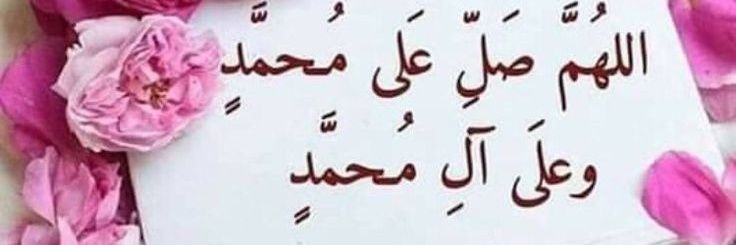 اللهُمَّ صَلِّ عَلَى مُحمَّدٍ
وعلَى آلِ مُحمَّدٍ